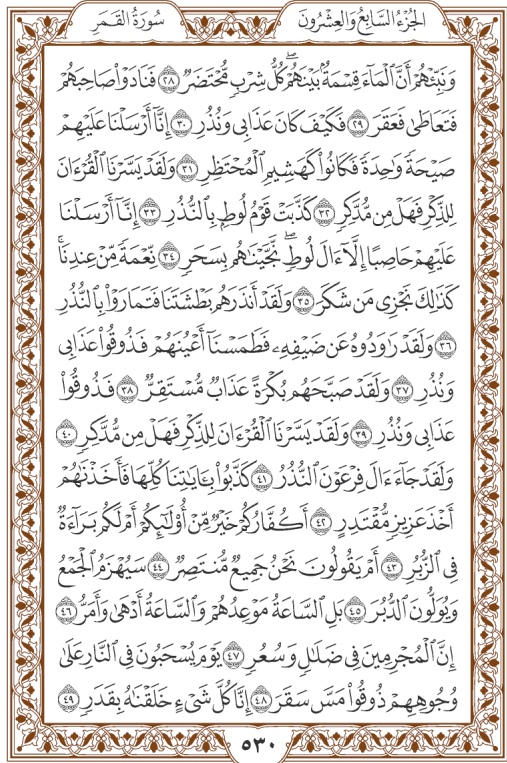 الجزء السابع والعشرون
سورة القمر
وَنَبِّئْهُمْ أَنَّ ٱلْمَآءَ قِسْمَةٌۢ بَيْنَهُمْ ۖ كُلُّ شِرْبٍۢ مُّحْتَضَرٌۭ ٢٨ فَنَادَوْا۟ صَاحِبَهُمْ
فَتَعَاطَىٰ فَعَقَرَ ٢٩ فَكَيْفَ كَانَ عَذَابِى وَنُذُرِ ٣٠ إِنَّآ أَرْسَلْنَا عَلَيْهِمْ
صَيْحَةًۭ وَٰحِدَةًۭ فَكَانُوا۟ كَهَشِيمِ ٱلْمُحْتَظِرِ ٣١ وَلَقَدْ يَسَّرْنَا ٱلْقُرْءَانَ
لِلذِّكْرِ فَهَلْ مِن مُّدَّكِرٍۢ ٣٢ كَذَّبَتْ قَوْمُ لُوطٍۭ بِٱلنُّذُرِ ٣٣ إِنَّآ أَرْسَلْنَا
عَلَيْهِمْ حَاصِبًا إِلَّآ ءَالَ لُوطٍۢ ۖ نَّجَّيْنَٰهُم بِسَحَرٍۢ ٣٤ نِّعْمَةًۭ مِّنْ عِندِنَا ۚ
كَذَٰلِكَ نَجْزِى مَن شَكَرَ ٣٥ وَلَقَدْ أَنذَرَهُم بَطْشَتَنَا فَتَمَارَوْا۟ بِٱلنُّذُرِ
٣٦ وَلَقَدْ رَٰوَدُوهُ عَن ضَيْفِهِۦ فَطَمَسْنَآ أَعْيُنَهُمْ فَذُوقُوا۟ عَذَابِى
وَنُذُرِ ٣٧ وَلَقَدْ صَبَّحَهُم بُكْرَةً عَذَابٌۭ مُّسْتَقِرٌّۭ ٣٨ فَذُوقُوا۟
عَذَابِى وَنُذُرِ ٣٩ وَلَقَدْ يَسَّرْنَا ٱلْقُرْءَانَ لِلذِّكْرِ فَهَلْ مِن مُّدَّكِرٍۢ ٤٠
وَلَقَدْ جَآءَ ءَالَ فِرْعَوْنَ ٱلنُّذُرُ ٤١ كَذَّبُوا۟ بِـَٔايَٰتِنَا كُلِّهَا فَأَخَذْنَٰهُمْ
أَخْذَ عَزِيزٍۢ مُّقْتَدِرٍ ٤٢ أَكُفَّارُكُمْ خَيْرٌۭ مِّنْ أُو۟لَٰٓئِكُمْ أَمْ لَكُم بَرَآءَةٌۭ
فِى ٱلزُّبُرِ ٤٣ أَمْ يَقُولُونَ نَحْنُ جَمِيعٌۭ مُّنتَصِرٌۭ ٤٤ سَيُهْزَمُ ٱلْجَمْعُ
وَيُوَلُّونَ ٱلدُّبُرَ ٤٥ بَلِ ٱلسَّاعَةُ مَوْعِدُهُمْ وَٱلسَّاعَةُ أَدْهَىٰ وَأَمَرُّ ٤٦
إِنَّ ٱلْمُجْرِمِينَ فِى ضَلَٰلٍۢ وَسُعُرٍۢ ٤٧ يَوْمَ يُسْحَبُونَ فِى ٱلنَّارِ عَلَىٰ
وُجُوهِهِمْ ذُوقُوا۟ مَسَّ سَقَرَ ٤٨ إِنَّا كُلَّ شَىْءٍ خَلَقْنَٰهُ بِقَدَرٍۢ ٤٩
٥٣٠